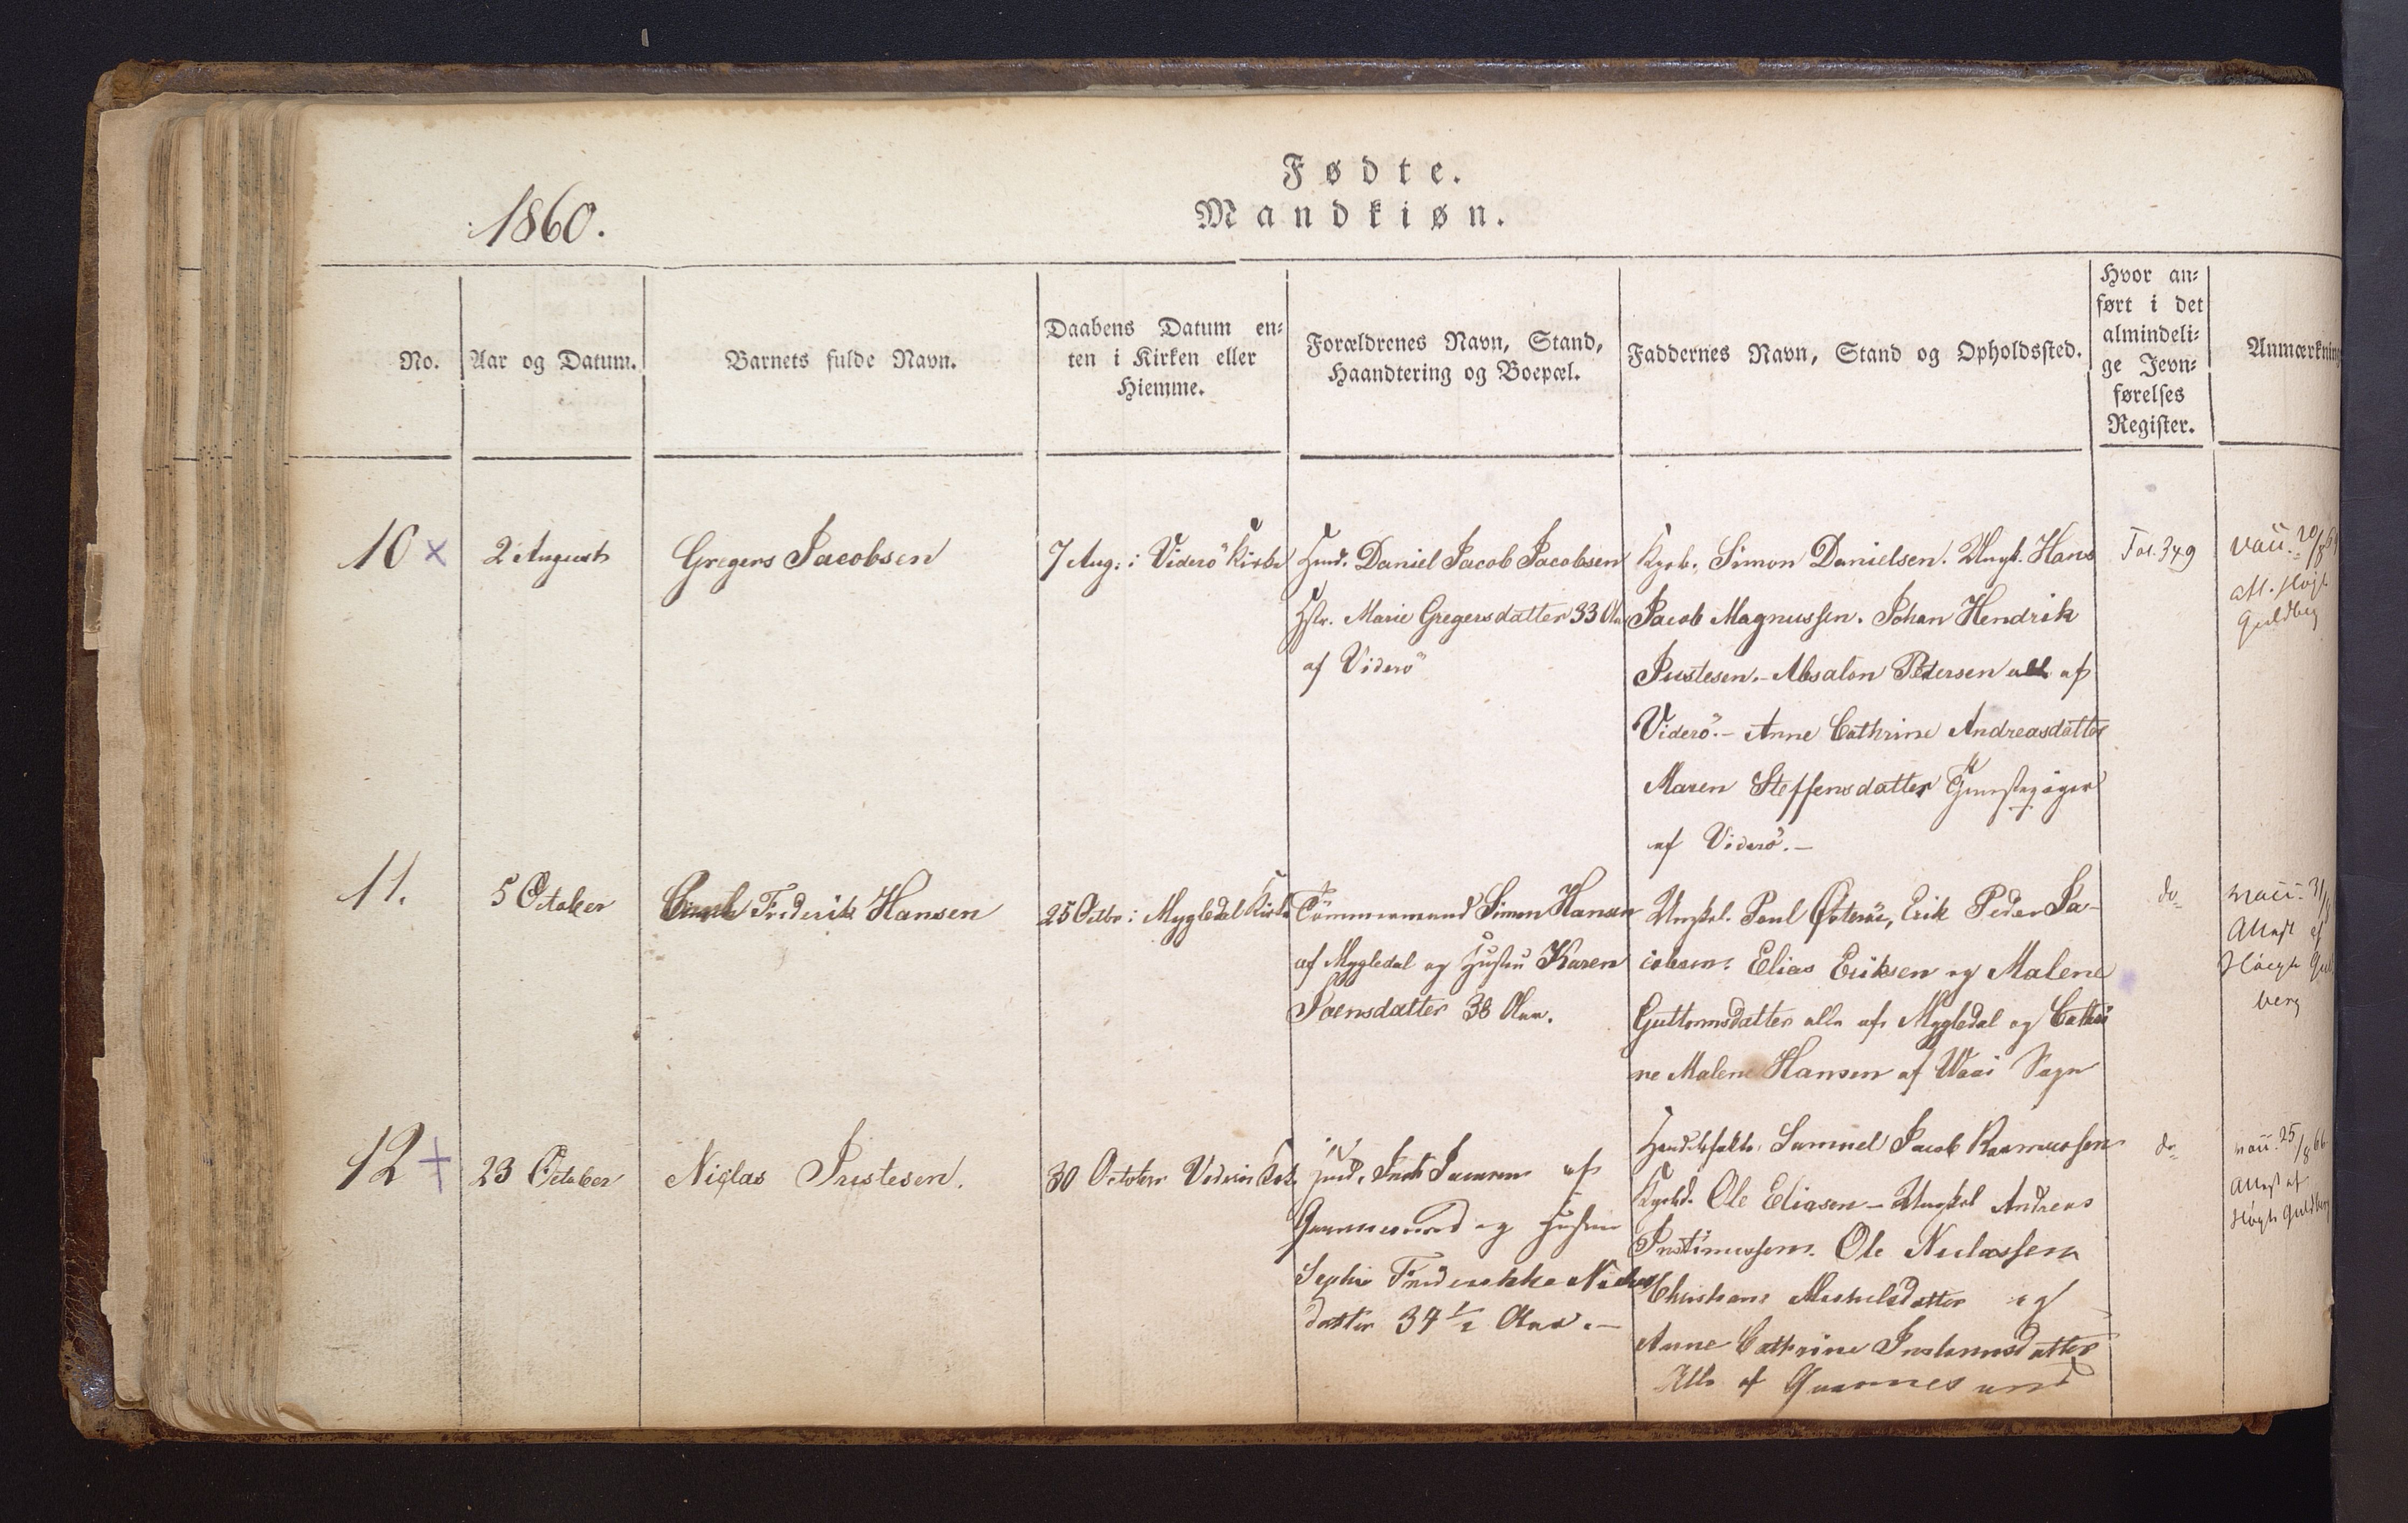 Fødte.
Mandkiøn.
1860.
No.
Aar og Datum.
Barnets fulde Navn.
Daabens Datum en-
ten i Kirken eller
Hiemme.
Forældrenes Navn, Stand,
Haandtering og Boepæl.
Faddernes Navn, Stand og Opholdssted.
Hvor an-
ført i det
almindeli-
ge Jevn-
førelses
Register.
Anmærkning
10 x
2 August
Gregers Jacobsen
7 Aug. i Viderö Kirke
Daniel Jacob Jacobsen
Hstr. Marie Gregersdatter 33 Aar
af Viderö
Simon Danielsen. Ungk. Hans
Jacob Magnussen. Johan Hendrik
Justesen. - Absalon Pedersen alle af
Viderö. - Anne Cathrine Andreasdatter
Maren Steffensdatter
af Viderö. -
Fol. 349
vacc. 20/8
att. Høgh
Guldberg
11.
5 October
Frederik Hansen
25 Octbr. i Mygledal Kirke
Tömmermand Simon Hansen
af Mygledal og Hustru Karen
Joensdatter 38 Aar.
Ungkl. Poul Erik Peder Ja-
cobsen. Elias Eriksen og Malene
Guttormsdatter alle af Mygledal og Cathri
ne Malene Hansen af Waai Sogn
do
vacc. 31/8
Attest af
Høegh Guld
berg
12 +
23 October
Niclas Justesen.
30 October Viderö
af
og Hustru
Sophie Frederikke Niclas
datter 34 1/2 Aar. -
Samuel Jacob Rasmussen
Ole Eliasen - Ungkarl Andreas
Justinussen. Ole Niclassen
og
Anne Cathrine
Alle af
do
vacc. 25/8 66
Attest af
Høgh Guldberg